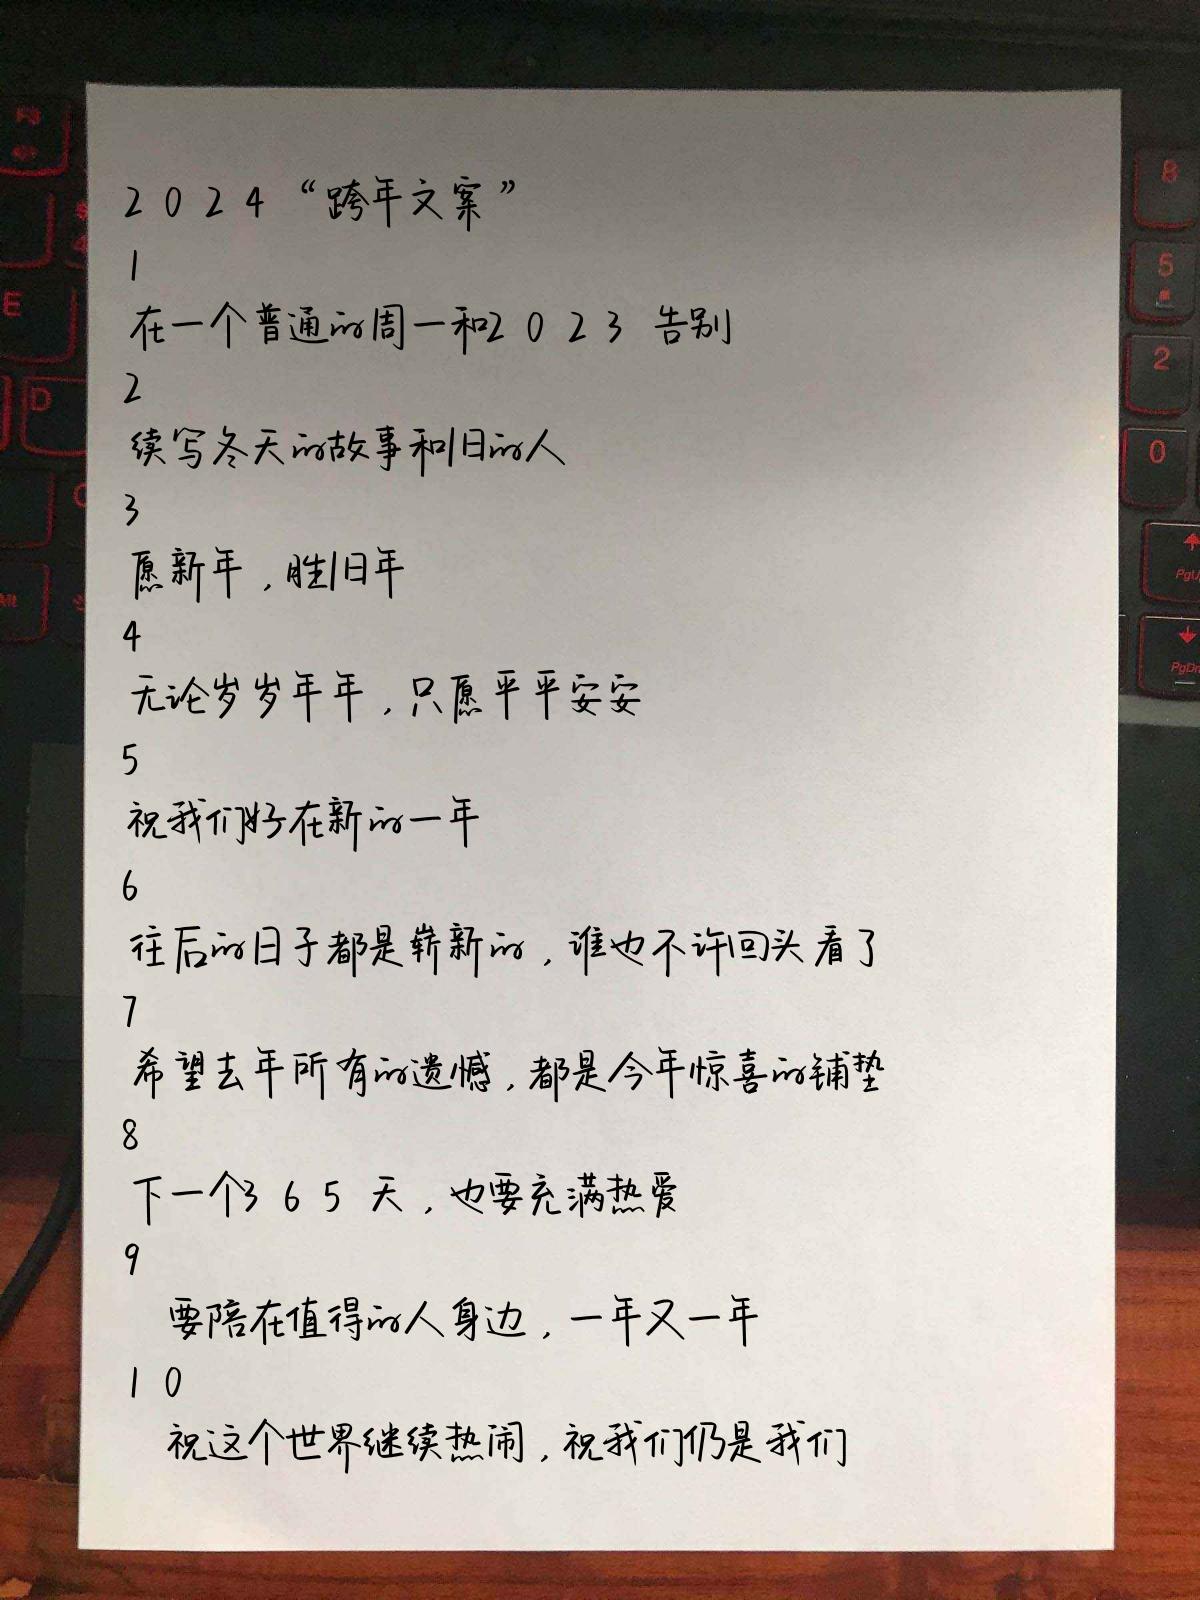 2024“跨年文案”
1
在一个普通的周一和2023告别
2
续写冬天的故事和旧的人
3
愿新年，胜旧年
4
无论岁岁年年，只愿平平安安
5
祝我们好在新的一年
6
往后的日子都是崭新的，谁也不许回头看了
7
希望去年所有的遗憾，都是今年惊喜的铺垫
8
下一个365天，也要充满热爱
9
要陪在值得的人身边，一年又一年
10
祝这个世界继续热闹，祝我们仍是我们
E
D
8
5
2
0
PgU
PgDn